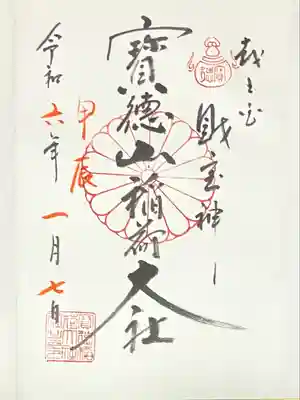 財宝神
寶徳山稲荷大社
甲辰
令和六年一月七日